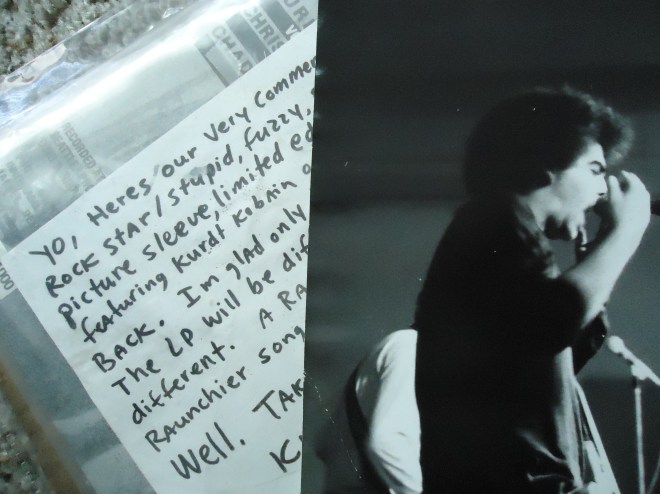 YO, HERES OUR VERY COMMER
ROCK STAR/STUPID, FUZZY,
PICTURE SLEEVE, LIMITED ED
FEATURING KURDT KOBAIN O
BACK. I'm glAD ONLY
THE LP WILL BE DIF
different. A RA
RAUNCHIER SONG
Well. TAK
K
CHRIS
CHAD